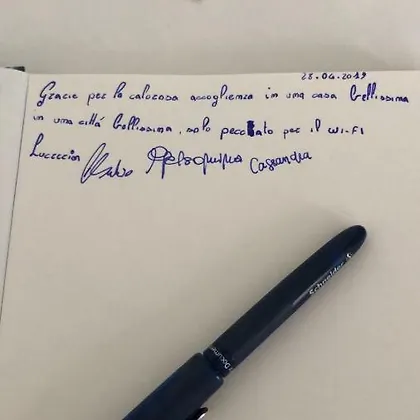 28.04.2019
Grazie per la calorosa accoglienza in una casa bellissima
in una città bellissima, solo peccato per il WI-FI
Cassandra
Schneider